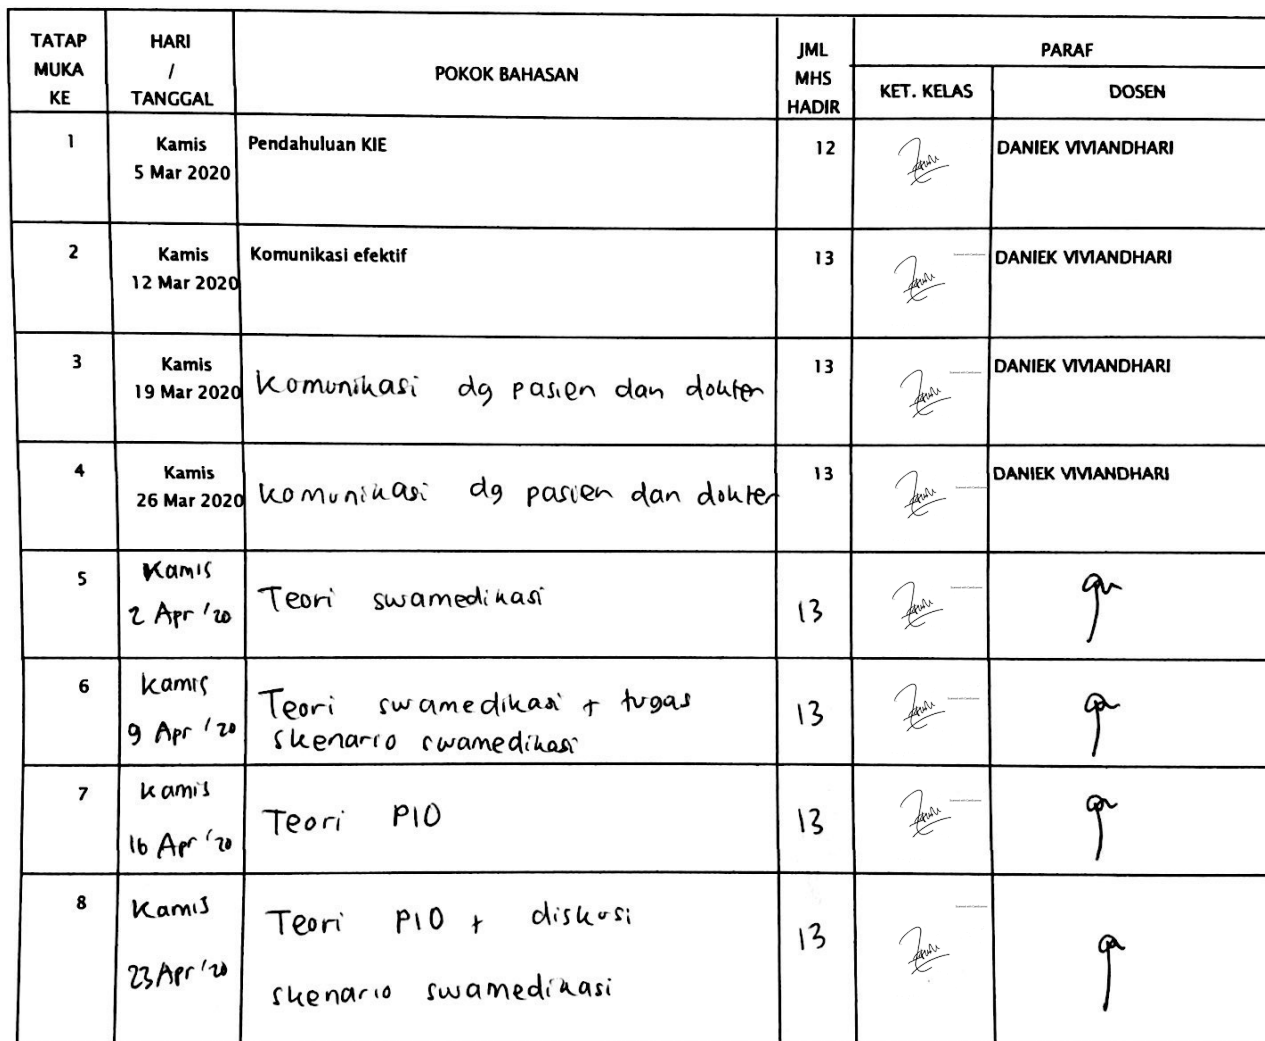 TATAP MUKA KE HARI / TANGGAL POKOK BAHASAN JML MHS HADIR PARAF
KET. KELAS DOSEN
1 Kamis 5 Mar 2020 Pendahuluan KIE 12 DANIEK VIVIANDHARI
2 Kamis 12 Mar 2020 Komunikasi efektif 13 DANIEK VIVIANDHARI
3 Kamis 19 Mar 2020 Komunikasi dg pasien dan dokter 13 DANIEK VIVIANDHARI
4 Kamis 26 Mar 2020 Komunikasi dg pasien dan dokter 13 DANIEK VIVIANDHARI
5 Kamis 2 Apr '20 Teori swamedikasi 13
6 Kamis 9 Apr '20 Teori swamedikasi + tugas
skenario swamedikasi 13
7 Kamis 16 Apr '20 Teori PIO 13
8 Kamis 23 Apr '20 Teori PIO + diskusi
skenario swamedikasi 13